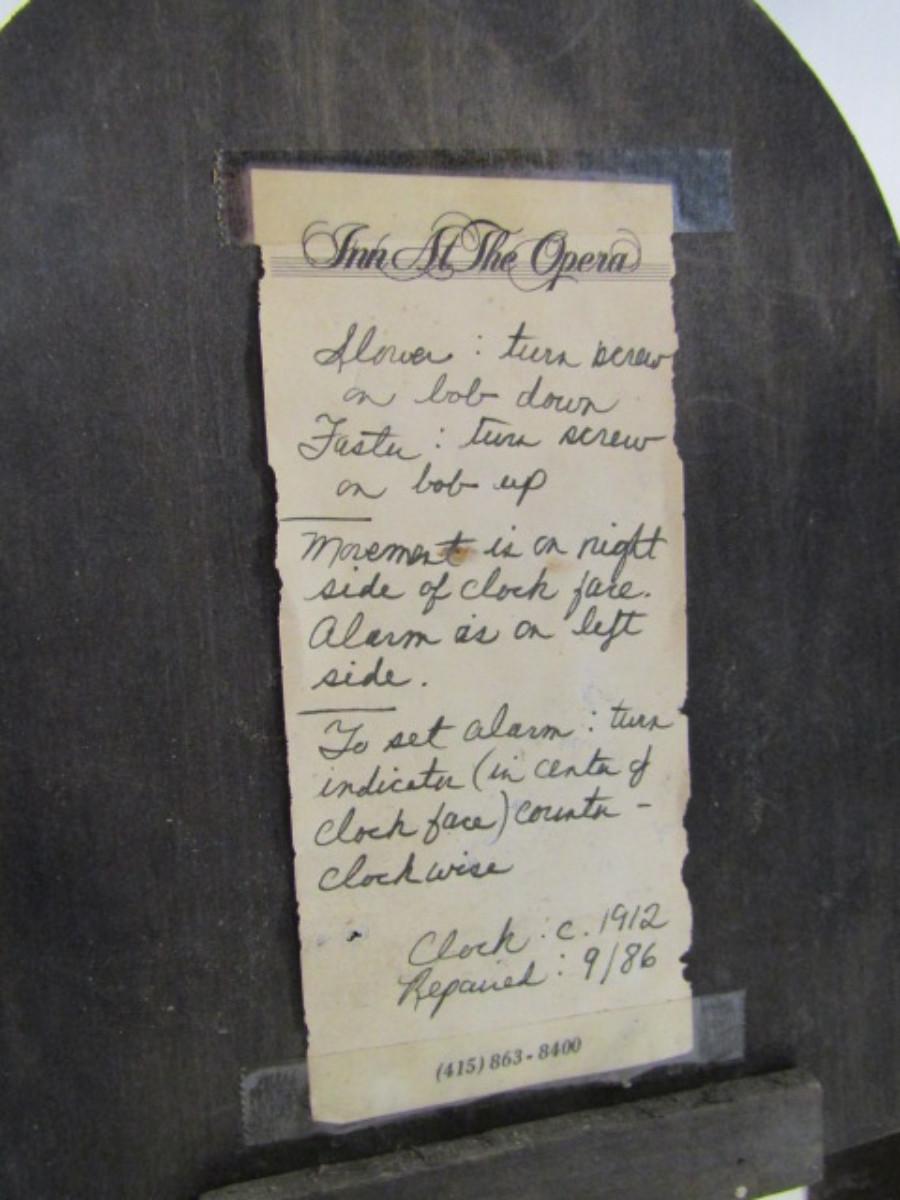 Inn At The Opera
Slower : turn screw
on bob down
Faster : turn screw
on bob up
Movement is on right
side of clock face.
Alarm is on left
side.
To set alarm : turn
indicator (in center of
clock face) counter -
clockwise
Clock : c. 1912
Repaired : 9/86
(415) 863-8400